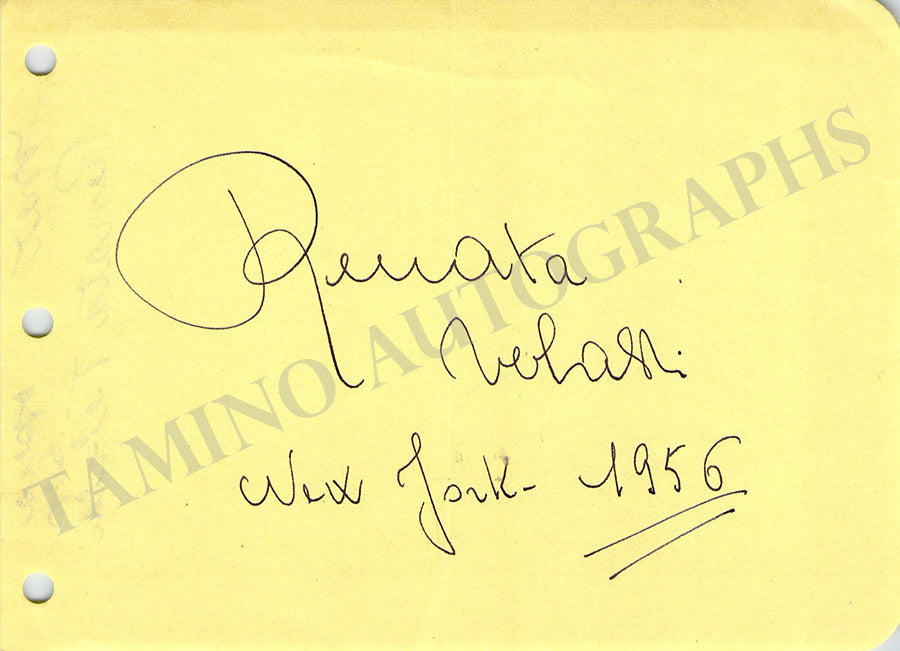 Renata
Tebaldi
New York - 1956
TAMINO AUTOGRAPHS